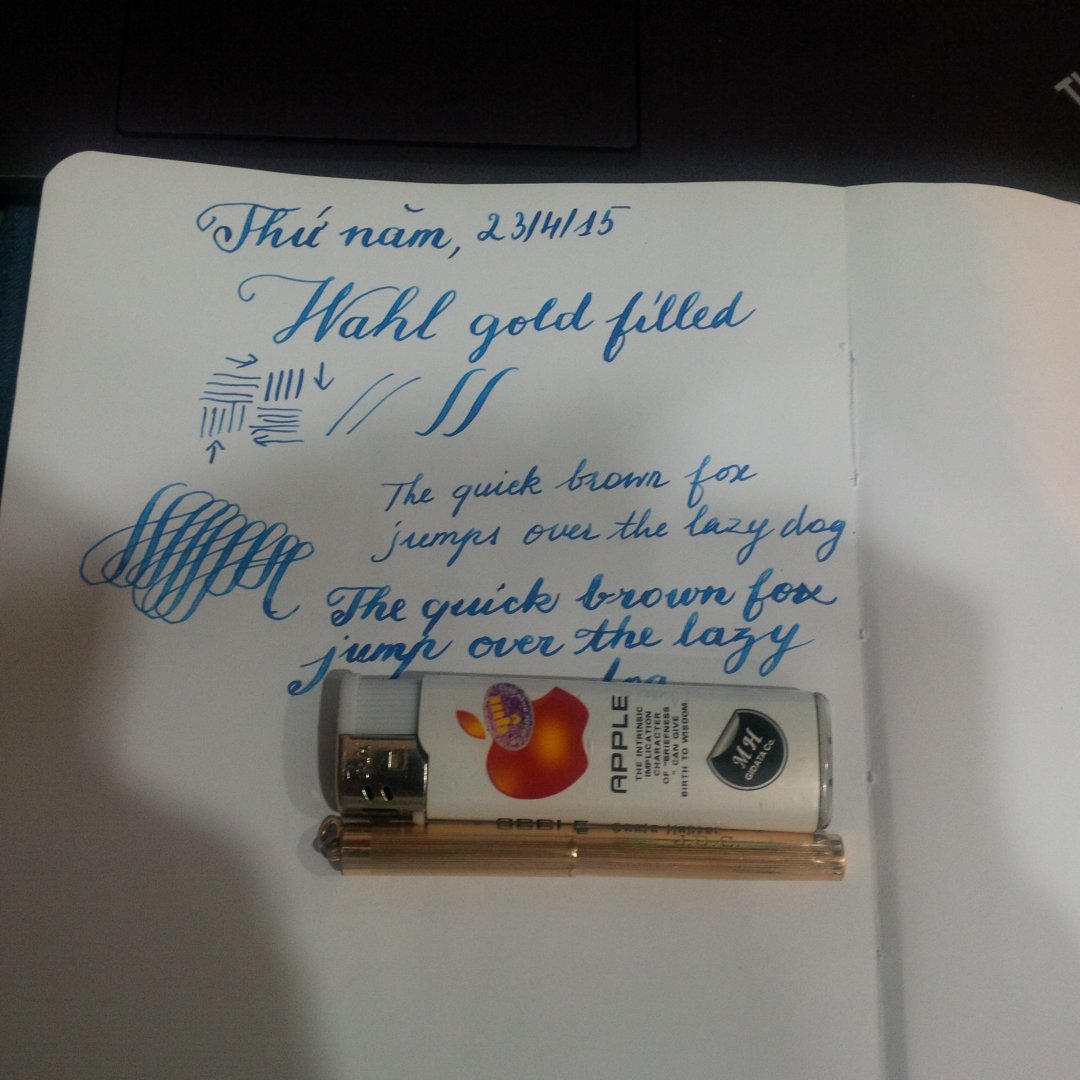 Thứ năm, 23/4/15
Wahl gold filled
The quick brown fox
jumps over the lazy dog
The quick brown fox
jump over the lazy
dog
APPLE
THE INTRINSIC
IMPLICATION
CHARACTER
OF "BRIEFNESS
" CAN GIVE
BIRTH TO WISDOM
MH
GIDATA Co.